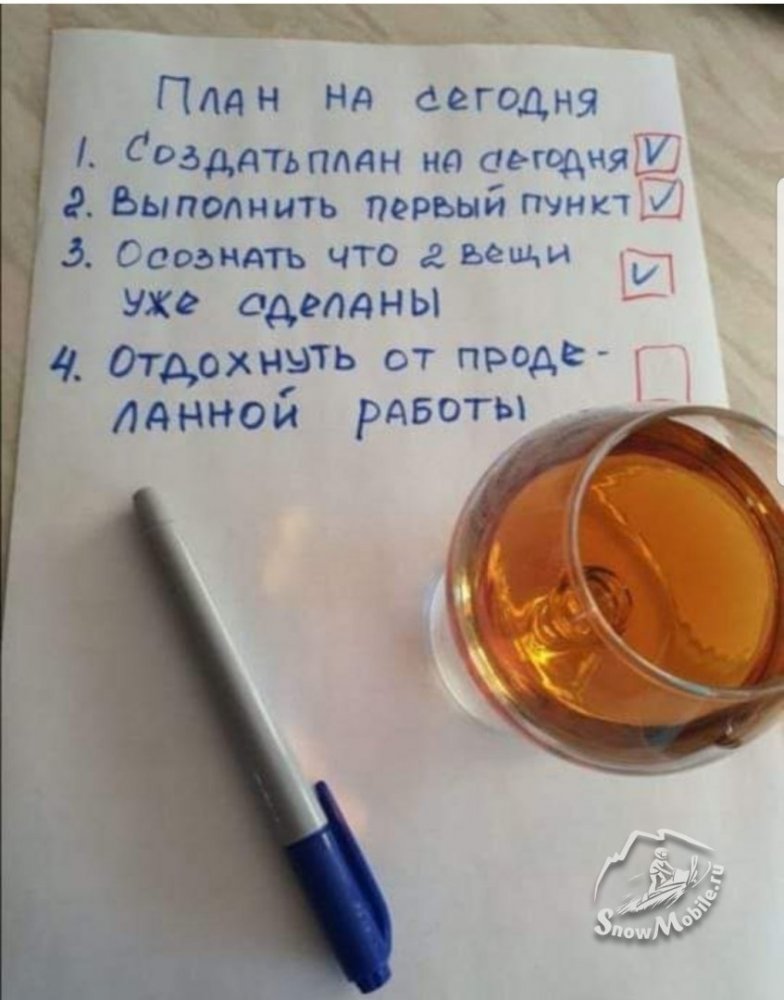 План на сегодня
1. Создать план на сегодня
2. Выполнить первый пункт
3. Осознать что 2 вещи
уже сделаны
4. Отдохнуть от проде-
ланной работы
SnowMobile.ru